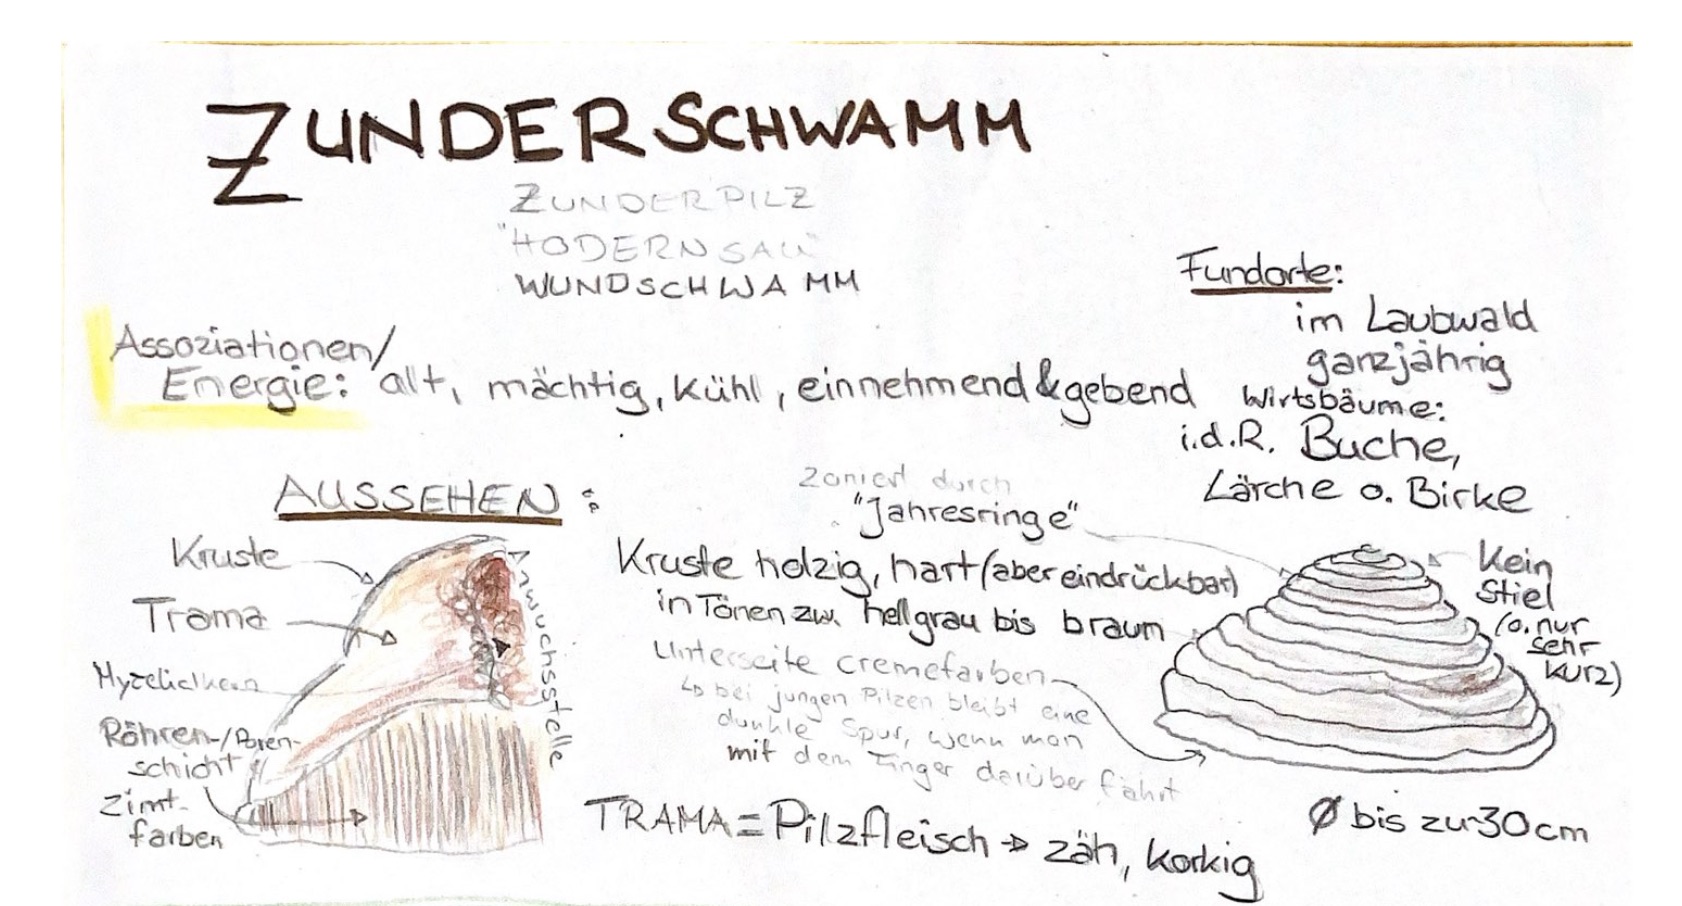 ZUNDERSCHWAMM
ZUNDERPILZ
"HODERNSAU"
WUNDSCHWAMM
Fundorte:
im Laubwald
ganzjährig
Wirtsbäume:
i.d.R. Buche,
Lärche o. Birke
Assoziationen/
Energie: alt, mächtig, kühl, einnehmend & gebend
AUSSEHEN:
Kruste
Trama
Myzelialkern
Röhren-/Poren-
schicht
zimt-
farben
Anwuchsstelle
Zoniert durch
"Jahresringe"
Kruste holzig, hart (aber eindrückbar)
in Tönen zw. hellgrau bis braun
Unterseite cremefarben
↳ bei jungen Pilzen bleibt eine
dunkle Spur, wenn man
mit dem Finger darüber fährt
TRAMA = Pilzfleisch → zäh, korkig
Kein
Stiel
(o. nur
sehr
kurz)
Ø bis zu 30cm